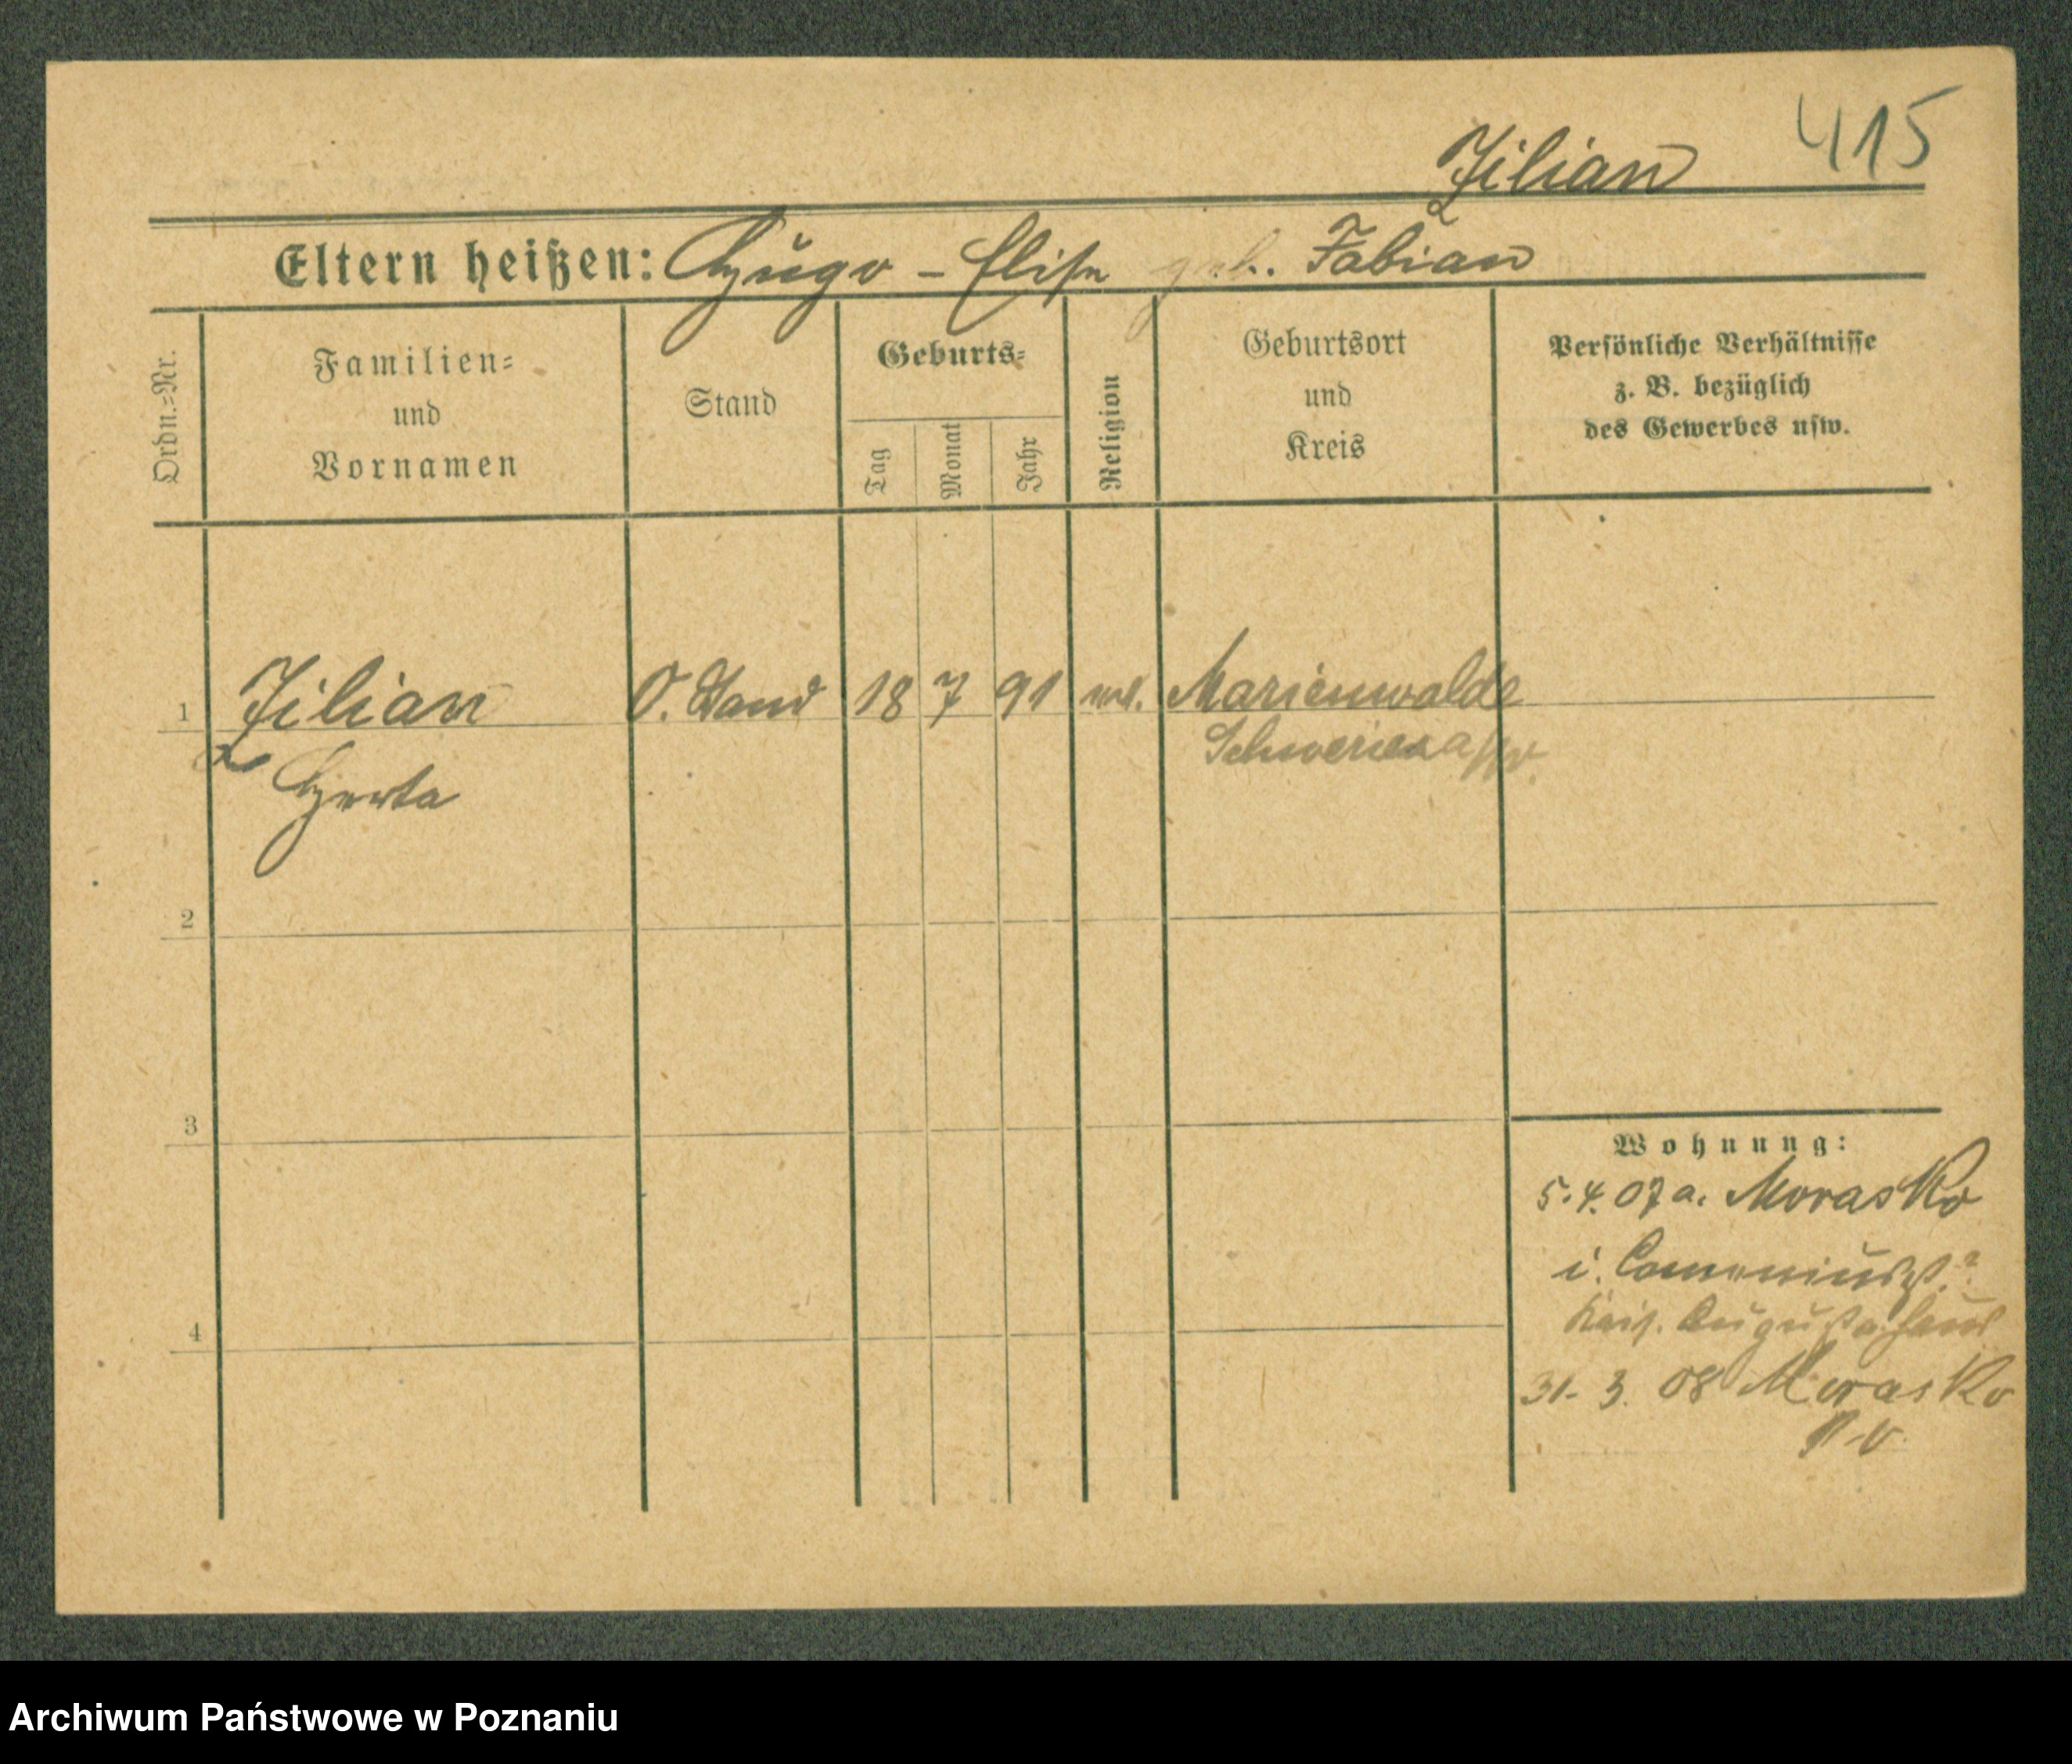 415
Jilian
Eltern heißen: Hugo - Elise geb. Fabian
Ordn.-Nr.
Familien-
und
Vornamen
Stand
Geburts-
Tag
Monat
Jahr
Religion
Geburtsort
und
Kreis
Persönliche Verhältnisse
z. B. bezüglich
des Gewerbes usw.
1 Jilian O. Stand 18 7 91 Marienwalde
Schwerin a/W.
Herta
2
3
4
Wohnung:
5.4.07 a. Morasko
i. Comeniusst.
Kais. Augusta haus
31. 3. 08 Morasko
Archiwum Państwowe w Poznaniu